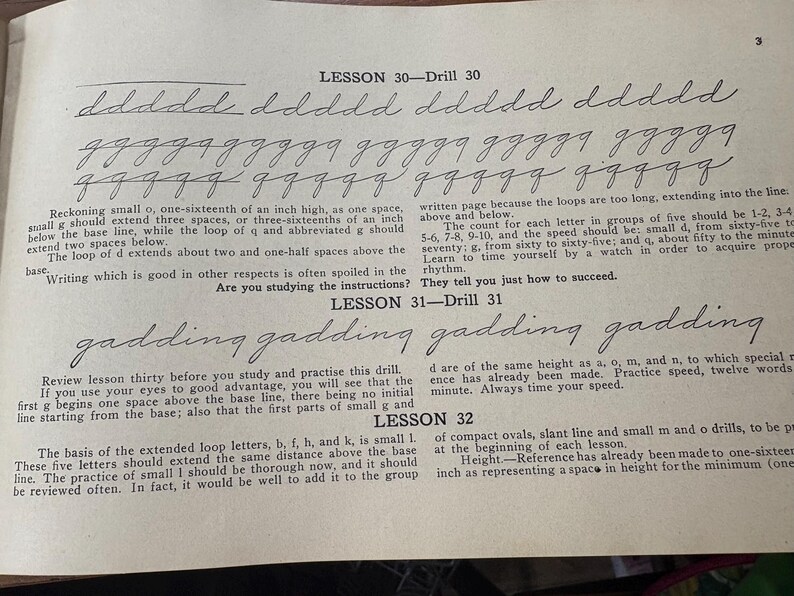 3
LESSON 30—Drill 30
ddddd ddddd ddddd ddddd
ggggg ggggg ggggg ggggg ggggg
qqqqq qqqqq qqqqq qqqqq
Reckoning small o, one-sixteenth of an inch high, as one space,
small g should extend three spaces, or three-sixteenths of an inch
below the base line, while the loop of q and abbreviated g should
extend two spaces below.
The loop of d extends about two and one-half spaces above the
base.
Writing which is good in other respects is often spoiled in the
written page because the loops are too long, extending into the line
above and below.
The count for each letter in groups of five should be 1-2, 3-4
5-6, 7-8, 9-10, and the speed should be: small d, from sixty-five to
seventy; g, from sixty to sixty-five; and q, about fifty to the minute
Learn to time yourself by a watch in order to acquire prope
rhythm.
Are you studying the instructions? They tell you just how to succeed.
LESSON 31—Drill 31
gadding gadding gadding gadding
Review lesson thirty before you study and practise this drill.
If you use your eyes to good advantage, you will see that the
first g begins one space above the base line, there being no initial
line starting from the base; also that the first parts of small g and
d are of the same height as a, o, m, and n, to which special r
ence has already been made. Practice speed, twelve words
minute. Always time your speed.
LESSON 32
The basis of the extended loop letters, b, f, h, and k, is small l.
These five letters should extend the same distance above the base
line. The practice of small l should be thorough now, and it should
be reviewed often. In fact, it would be well to add it to the group
of compact ovals, slant line and small m and o drills, to be pr
at the beginning of each lesson.
Height.—Reference has already been made to one-sixteen
inch as representing a space in height for the minimum (one